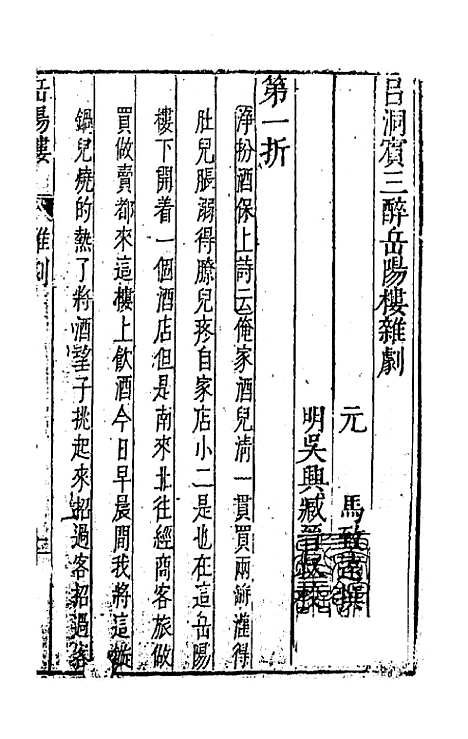 呂洞賓三醉岳陽樓雜劇
元 馬致遠撰
明吳興臧晉叔校
第一折
淨扮酒保上詩云俺家酒兒淸一貫買兩缾灌得
肚兒脹溺得臕兒疼自家店小二是也在這岳陽
樓下開着一個酒店但是南來北往經商客旅做
買做賣都來這樓上飮酒今日早晨間我將這鏇
鍋兒燒的熱了將酒望子挑起來招過客招過客
岳陽樓 雜劇 一